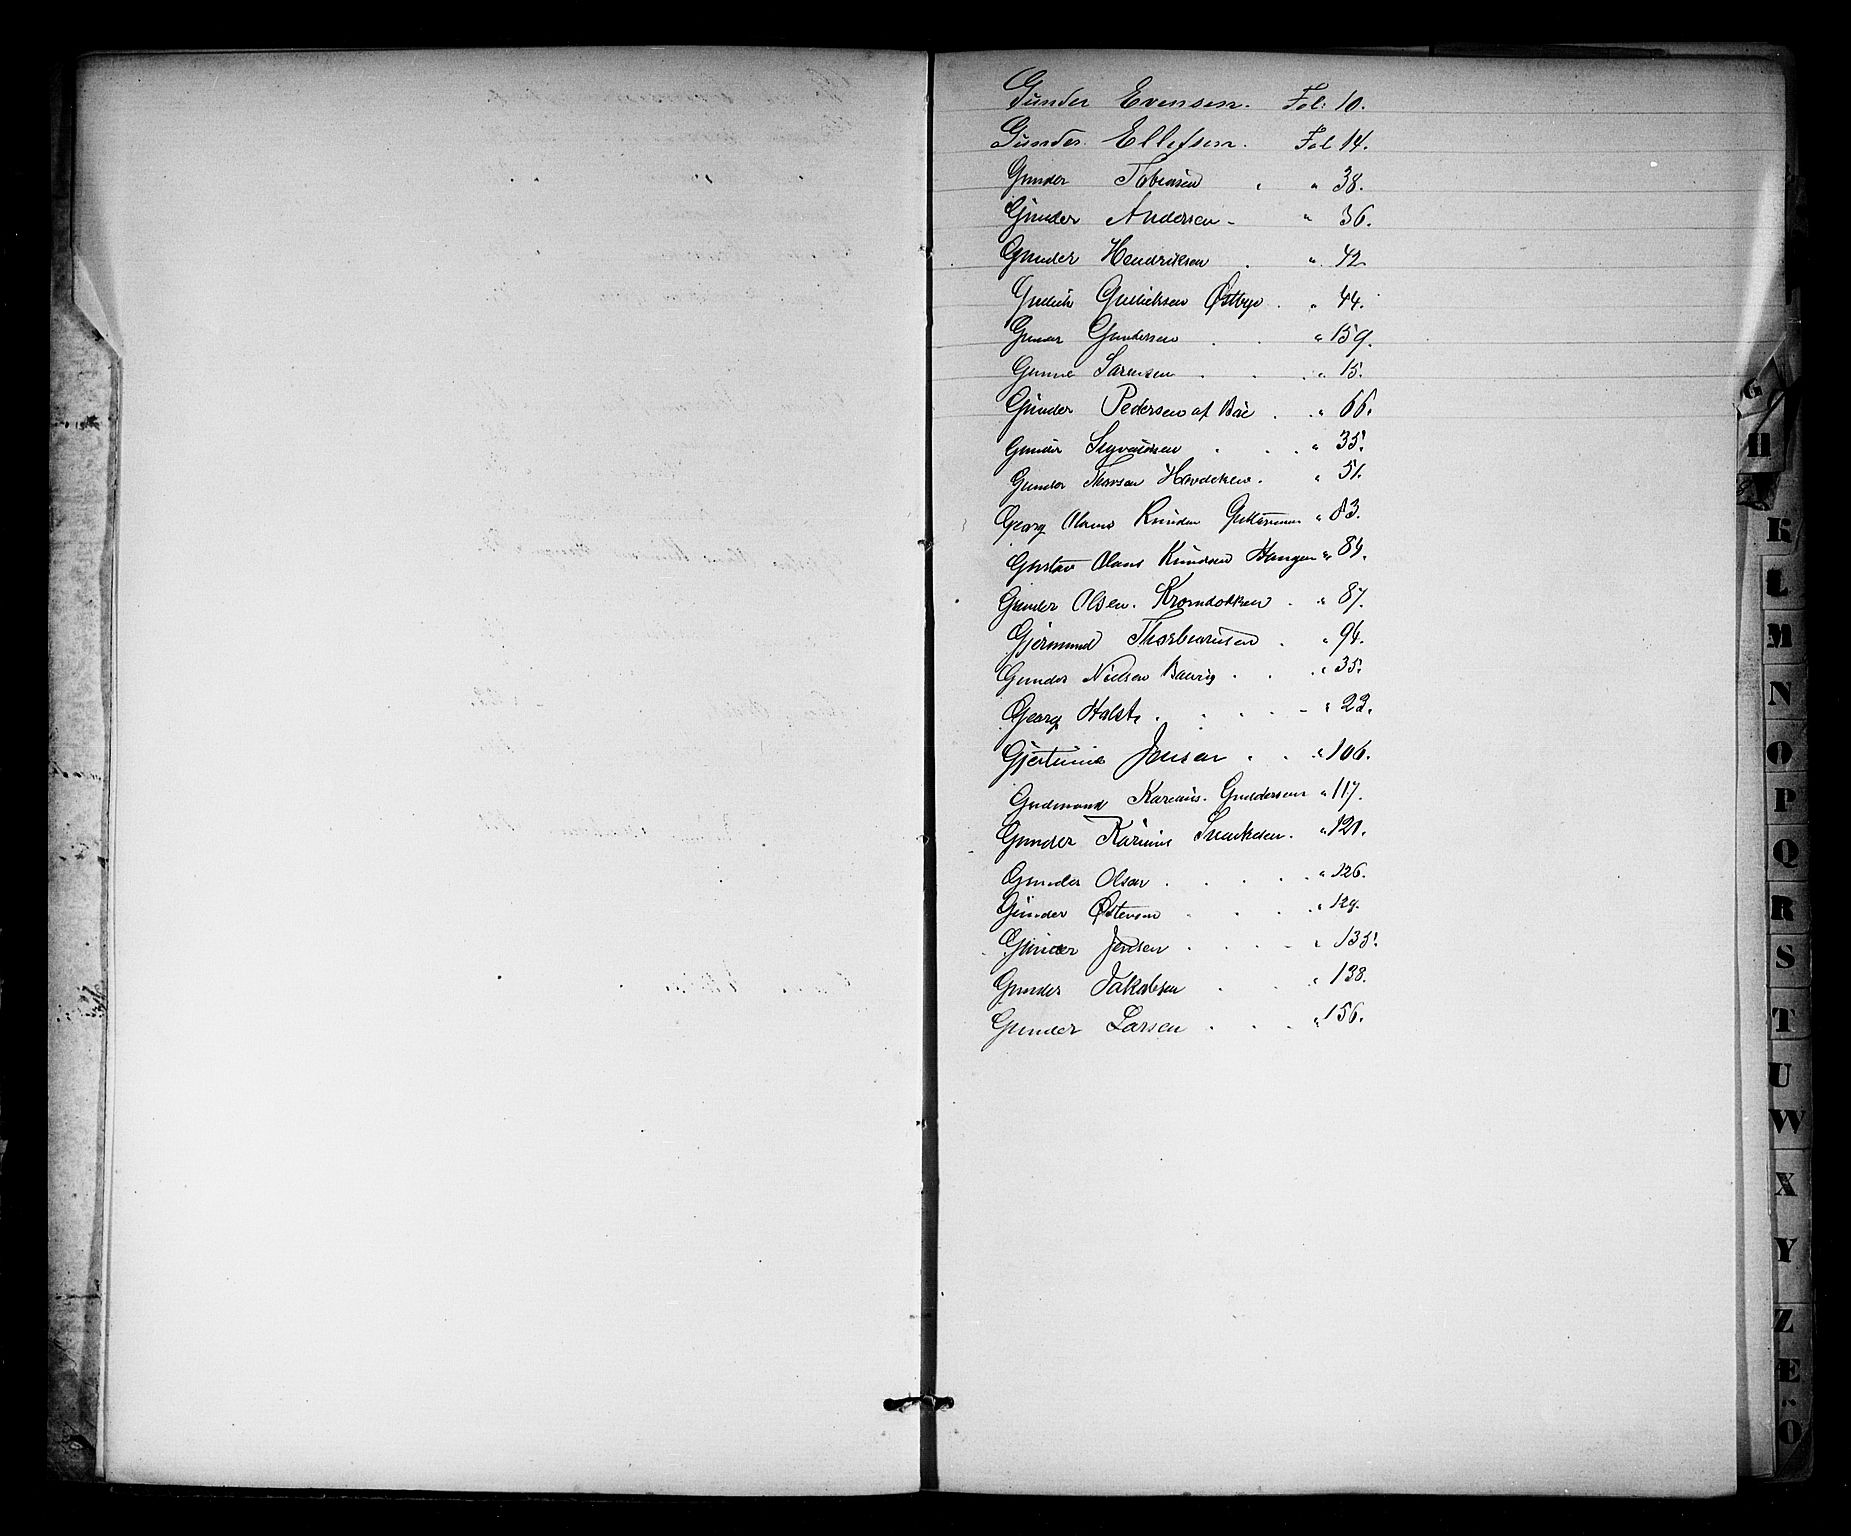 Gunder Evensen. Fol: 10.
Gunder Ellefsen. Fol 14.
Gunder Tobiasen " 38.
Gunder Andersen - " 36.
Gunder Hendriksen . " 42
Gullich Gullichsen Østbye . " 44.
Gunder Gundersen . . " 159.
Gunne Sørensen . . . " 15.
Gunder Pedersen af Bae . . " 66.
Gunder Sigvaldsen . . . " 35.
Gunder Thorsen " 51.
Georg Olaus Knudsen " 83.
Gustav Olaus Knudsen Haugen " 84.
Gunder Olsen. . " 87.
Gjermund Thorbjørnsen . " 94.
Gunder Nielsen . . " 35.
Georg Holst . . . . - " 23.
Gjertine Jensen . . . " 106.
Gudmund Karenius. Gundersen " 117.
Gunder Karinius . " 121.
Gunder Olsen . . . . " 126.
Gunder Østensen . . . " 129.
Gunder Jensen . . . - " 135.
Gunder Jakobsen . . " 138.
Gunder Larsen . . . " 156.
G
H
K
L
M
N
O
P
Q
R
S
T
U
W
X
Y
Z
Æ
Ö